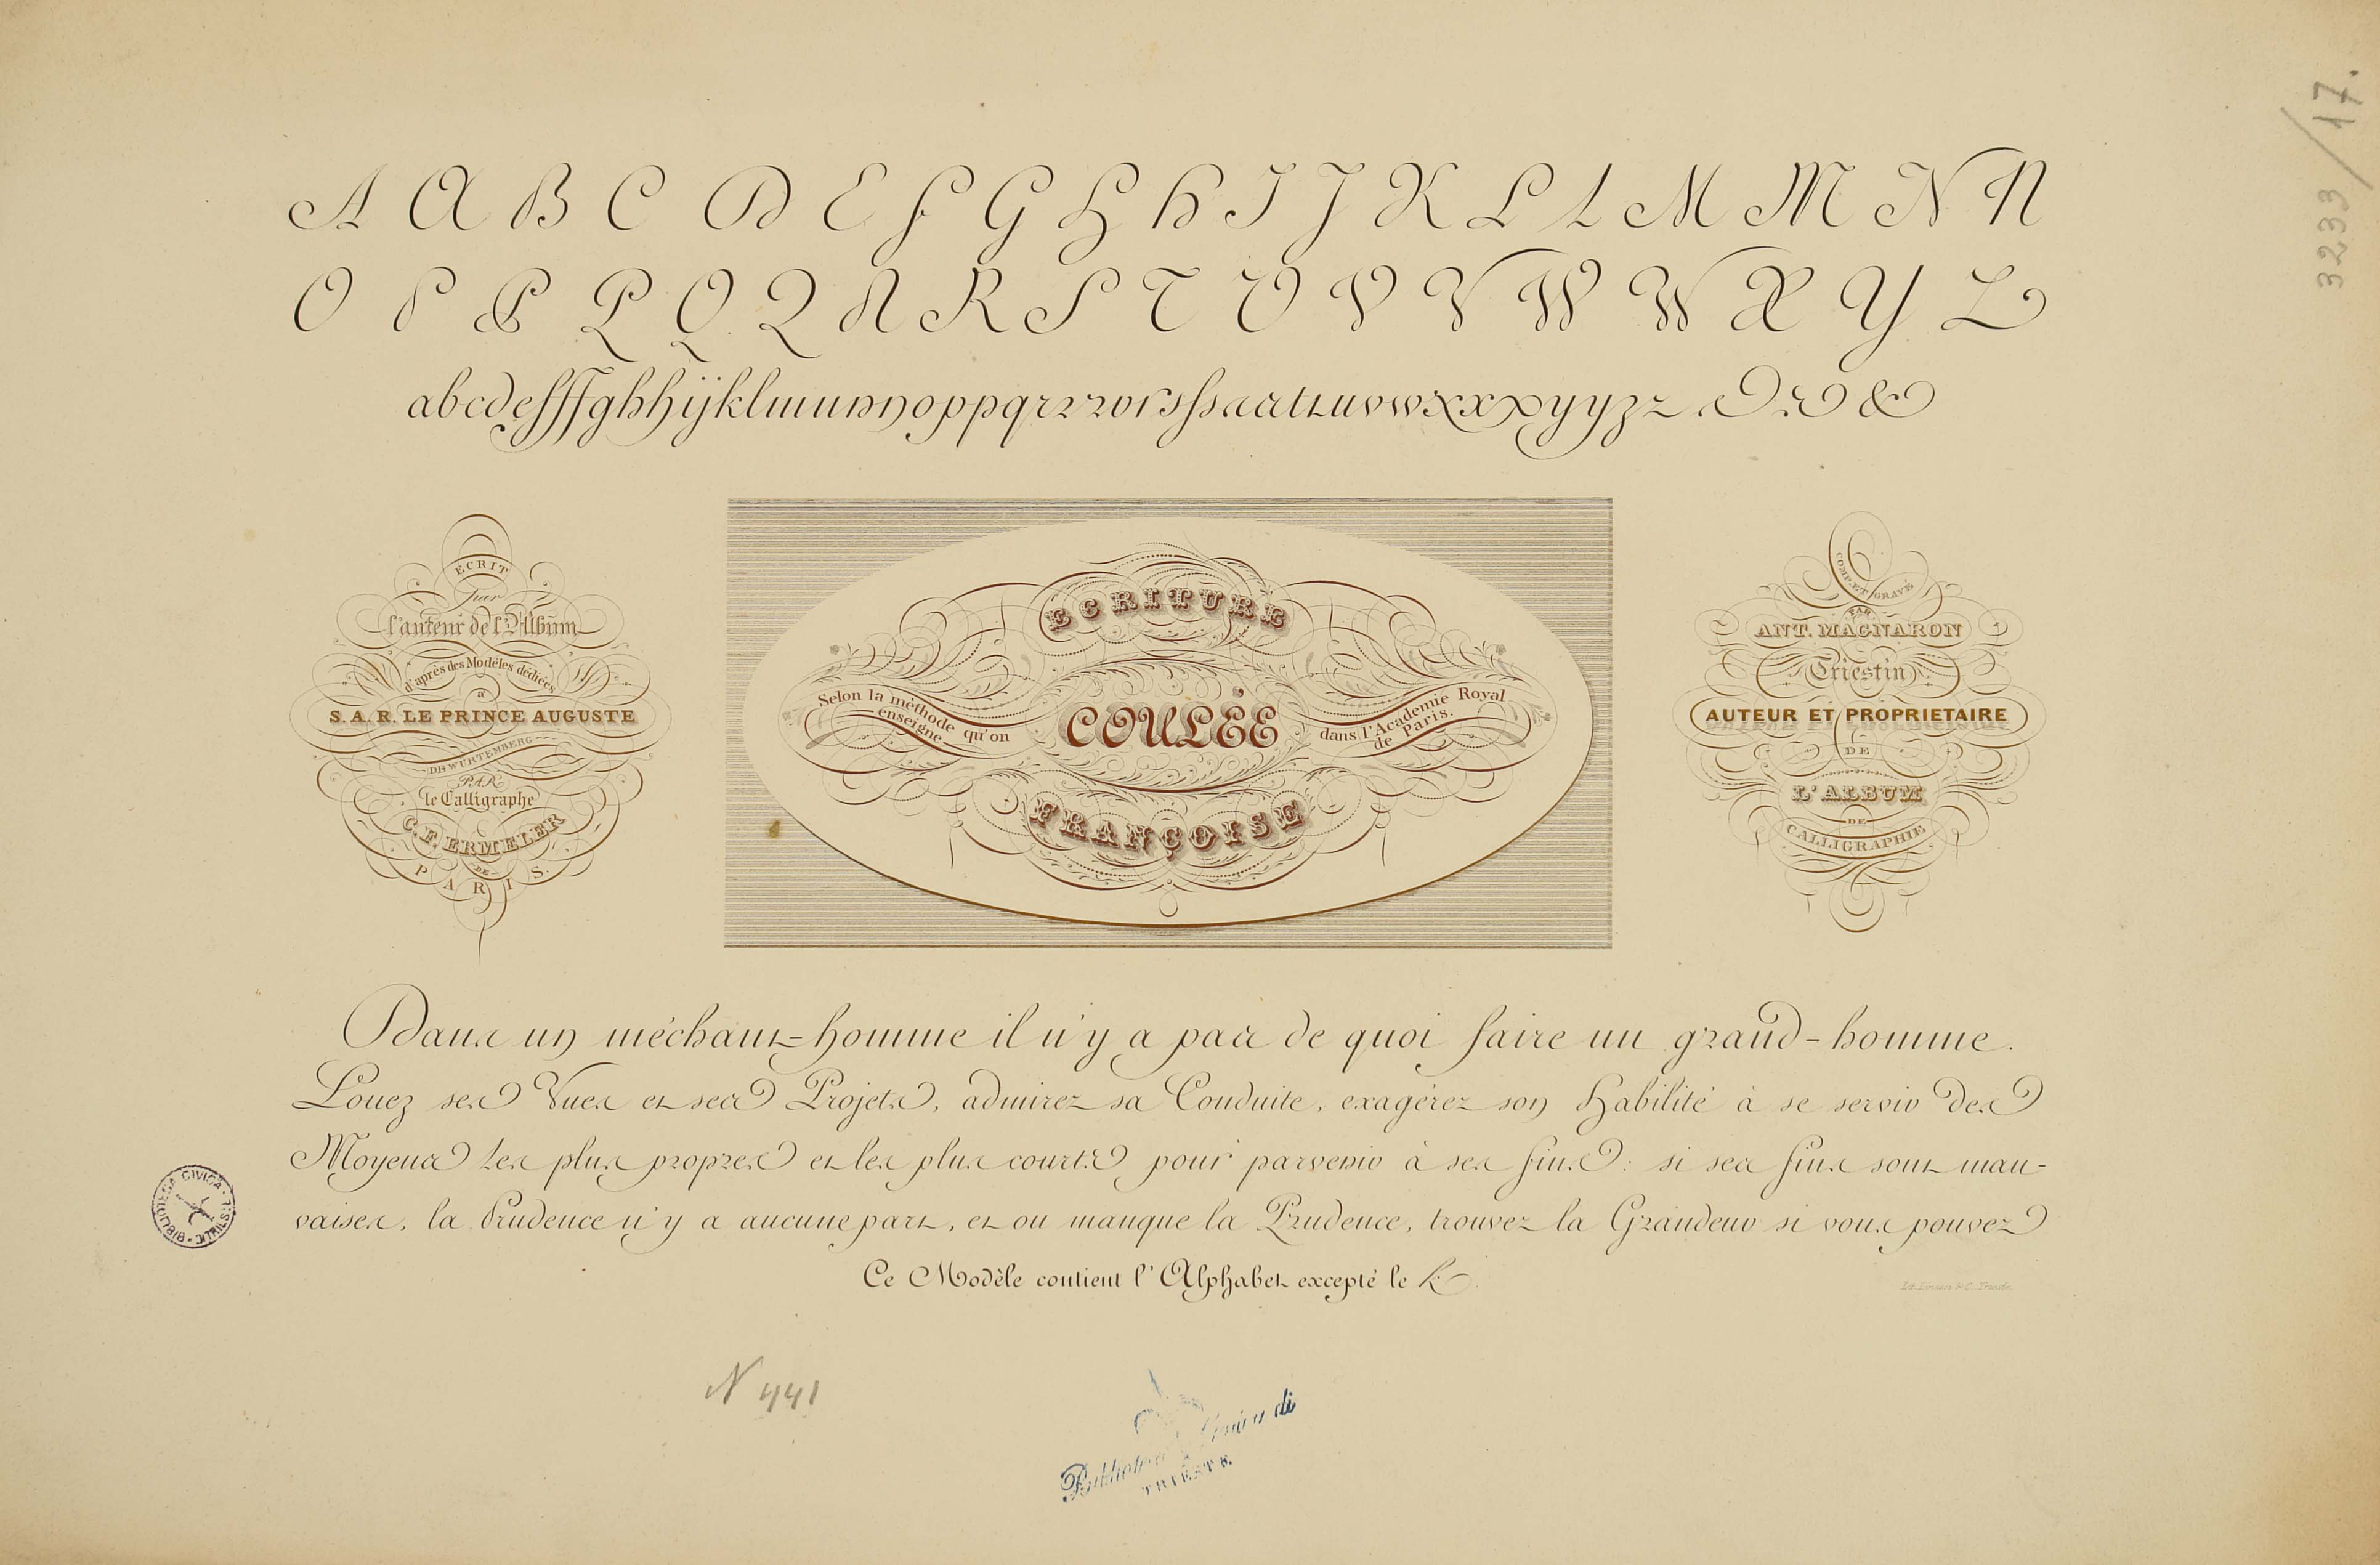 A A B C D E F G H H I J K L L M M N N
O P P P Q Q R R S T U V V W W X Y Z
ECRIT
par
l'auteur de l'Album
d'après des Modèles dédiées
a
S. A. R. LE PRINCE AUGUSTE
DE WURTEMBERG
PAR
le Calligraphe
C. F. ERMELER
DE
PARIS.
ECRITURE
Selon la méthode qu'on
enseigne
COULÉE
dans l'Academie Royal
de Paris.
FRANÇOISE
COMP. ET GRAVÉ
PAR
ANT. MAGNARON
Triestin
AUTEUR ET PROPRIETAIRE
DE
L'ALBUM
DE
CALLIGRAPHIE
Dans un méchant-homme il n'y a pas de quoi faire un grand-homme.
Louez ses Vues et ses Projets, admirez sa Conduite, exagérez son Habilité à se servir des
Moyens les plus propres et les plus courts pour parvenir à ses fins: si ses fins sont mau-
vaises, la Prudence n'y a aucune part, et ou manque la Prudence, trouvez la Grandeur si vous pouvez
Ce Modèle contient l'Alphabet excepté le k
BIBLIOTECA CIVICA · TRIESTE ·
N 441
di
TRIESTE
3233/17.